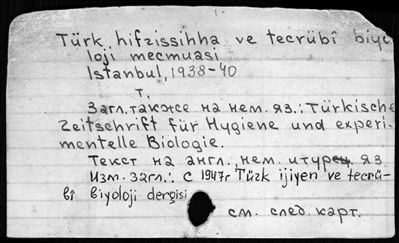 Türk hifzissihha ve tecrübî biyo
loji mecmuasi
Istanbul, 1938-40
т.
Загл. также на нем. яз.: Türkische
Zeitschrift für Hygiene und experi-
mentelle Biologie.
Текст на англ., нем. и турец. яз
Изм. загл.: с 1947г Türk ijiyen ve tecrü-
bî biyoloji dergisi
см. след. карт.